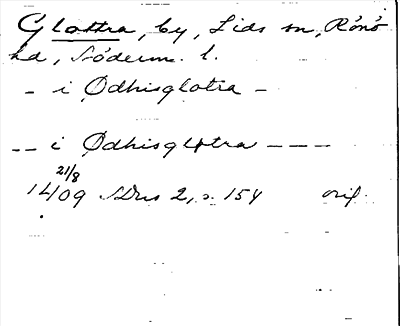 Glottra, by, Lids sn, Rönö
hd, Söderm. l.
- i Ødhisglotra -
-- i Ødhisglotra ---
21/8
1409 SDns 2, s. 154 orig.